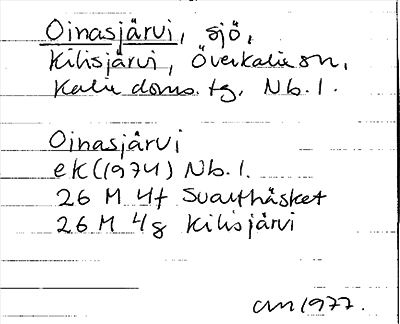 Oinasjärvi, sjö,
Kilisjärvi, Överkalix sn,
Kalix doms. tg, Nb. l.
Oinasjärvi
ek (1974) Nb. l.
26 M 4f Svarthäsket
26 M 4g Kilisjärvi
am 1977.